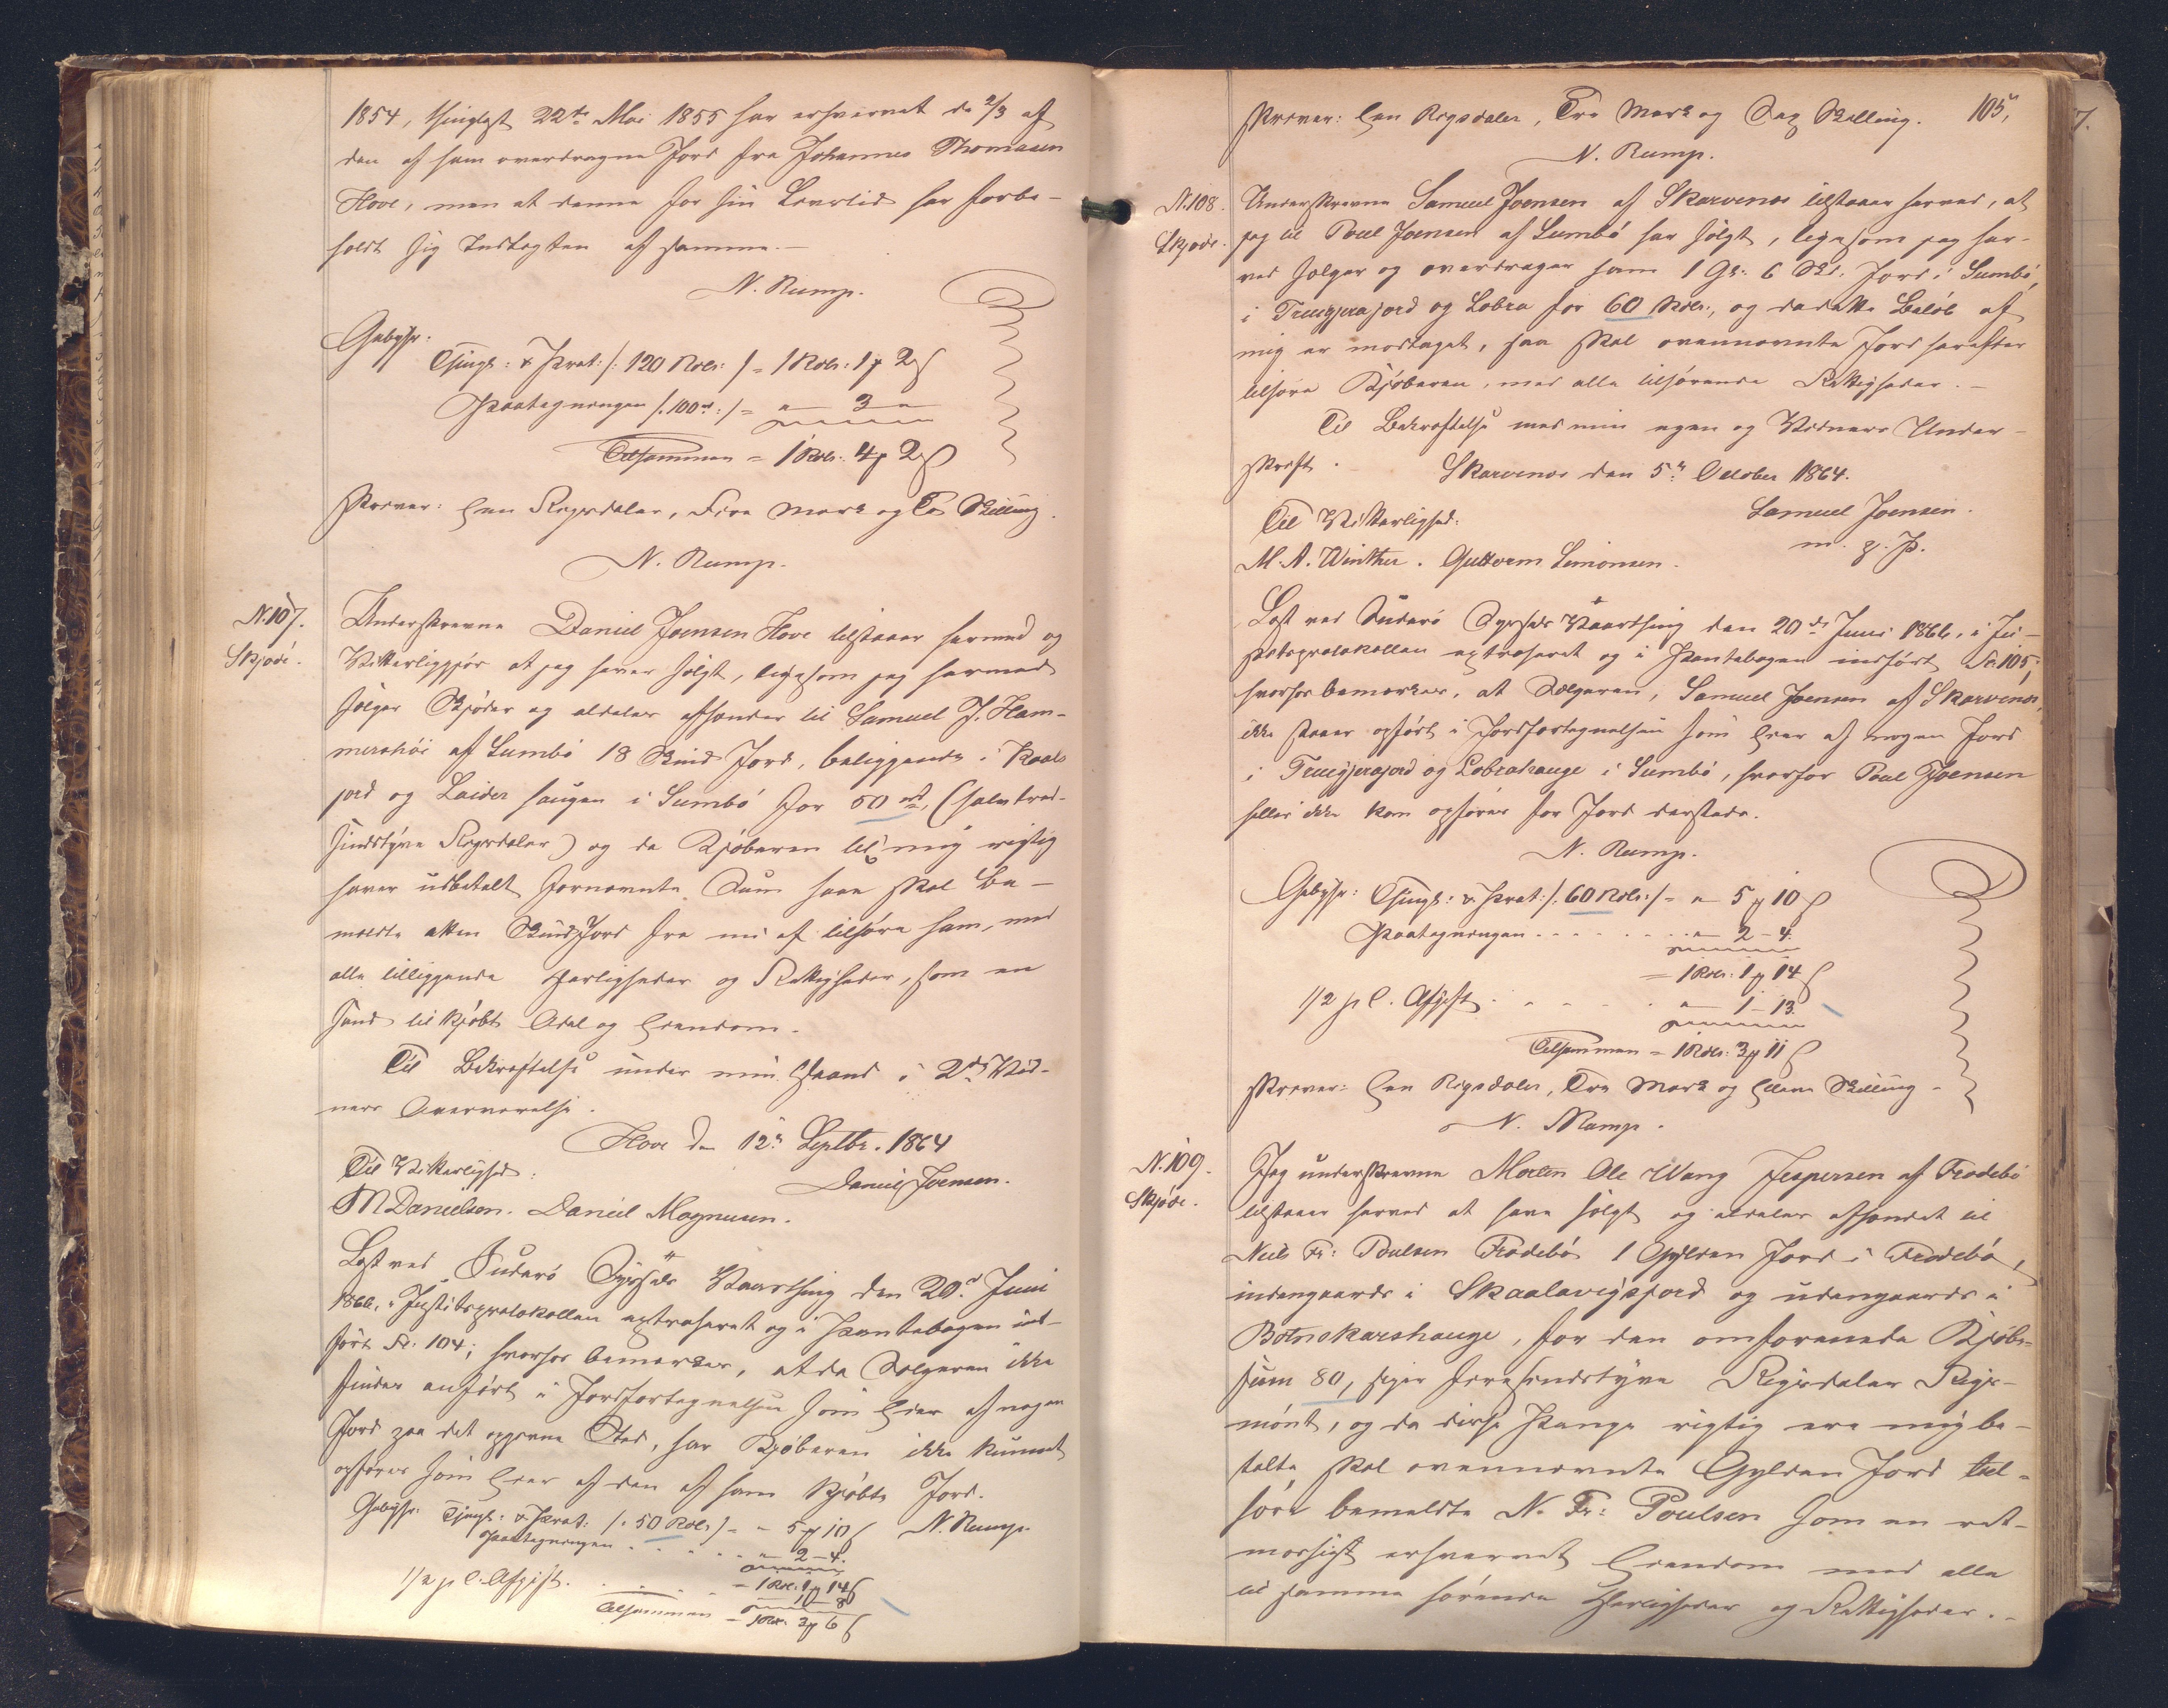 1854, thinglæst 22de Mai 1855 har erhvervet de 2/3 af
den af ham overdragne Jord fra Johannes Thomasen
Hove, men at denne for sin Levetid har forbe-
holdt sig Indtægten af samme.
N. Rump.
Gebyhr:
Thingl: & Prot: /: 120 Rdlr: / = 1 Rdlr: 1 # 2 ß
Paategningen /: 100 rd :/ = " 3 "
Tilsammen = 1 Rdlr. 4 # 2 ß
skriver: Een Rigsdaler, Fire Mark og To Skilling.
N. Rump.
N. 107.
Skjøde.
Underskrevne Daniel Joensen Hove tilstaaer hermed og
Vitterliggjør at jeg haver solgt, ligesom jeg hermed
sælger Skjøder og aldeles afhænder til Samuel J. Ham-
mershöi af Sumbö 18 Skind Jord, beliggende i
jord og Laider haugen i Sumbö for 50 rd, (halvtred-
sindstyve Rigsdaler) og da Kjøberen til mig rigtig
haver udbetalt fornævnte Sum saa skal be-
meldte atten Skind Jord fra nu af tilhøre ham, med
alle tilliggende Herligheder og Rettigheder, som en
sand til kjøbt Odel og Eiendom.
Til Bekræftelse under min Haand i 2de Vid-
ners Overværelse.
Hove den 12te Septbr. 1864
Til Vitterlighed:
Daniel Joensen.
M Danielsen. Daniel Magnusen.
Læst ved Suderö Syssels Vaarthing den 20de Juni
1866, i Justitsprotokollen extraheret og i Pantebogen ind-
ført Fo: 104; hvorhos bemærkes, at da Sælgeren ikke
findes anført i Jordfortegnelsen som Eier af nogen
Jord paa det opgivne Sted, har Kjøberen ikke kunnet
opføres som Eier af den af ham kjøbte Jord.
Gebyhr: Thingl: & Prot: /: 50 Rdlr / = " 5 # 10 ß N. Rump.
Paategningen . . . . " 2 - 4.
= 1 Rdl: 1 # 14 ß
1/2 p C. Afgift. . . . 8
Tilsammen = 1 Rdlr. 3 # 6 ß
105,
skriver: Een Rigsdaler, Tre Mark og Sex Skilling.
N. Rump.
N. 108.
Skjøde.
Underskrevne Samuel Joensen af Skarvenæs tilstaaer herved, at
jeg til Poul Joensen af Sumbö har solgt, ligesom jeg her-
ved sælger og overdrager ham 1 Gl: 6 Skd. Jord i Sumbö,
i Trugjerajord og Lobra for 60 Rdlr., og da dette Beløb af
mig er modtaget, saa skal ovennævnte Jord herefter
tilhøre Kjøberen, med alle tilhørende Rettigheder.
Til Bekræftelse med min egen og Vidners Under-
skrift.
Skarvenæs den 5te October 1864.
Samuel Joensen.
Til Vitterlighed:
m. f. P.
M. A. Winther. Guttorm Simonsen.
Læst ved Suderö Syssels Vaarthing den 20de Juni 1866, i Ju-
stitsprotokollen extraheret og i Pantebogen indført Fo: 105;
hvorhos bemærkes, at Sælgeren, Samuel Joensen af Skarvenæs,
ikke staaer opført i Jordfortegnelsen som Eier af nogen Jord
i Trugjerajord og Lobrahauge i Sumbö, hvorfor Poul Joensen
heller ikke kan opføres for Jord dersteds.
N. Rump.
Gebyhr: Thingl: & Prot: /: 60 Rdlr: / = " 5 # 10 ß
Paategningen . . . . . . " 2 - 4.
= 1 Rdlr: 1 # 14 ß
1/2 p C. Afgift . . . . " 1 - 13.
Tilsammen = 1 Rdlr: 3 # 11 ß
skriver: Een Rigsdaler, Tre Mark og Elleve Skilling.
N. Rump.
N. 109.
Skjøde.
Jeg underskrevne Morten Ole Wang Jespersen af Frodebö
tilstaaer herved at have solgt og aldeles afhændet til
Niels Fr: Poulsen Frodebö 1 Gylden Jord i Frodebö,
indengaards i Skaalavigsjord og udengaards i
Botnskarshauge, for den omforenede Kjøbe-
sum 80, siger firesindstyve Rigsdaler Rigs-
mönt, og da disse Penge rigtig ere mig be-
talte skal ovennævnte Gylden Jord til-
høre bemeldte N. Fr: Poulsen som en ret-
mæssigt erhvervet Eiendom med alle
til samme hørende Herligheder og Rettigheder.
7.